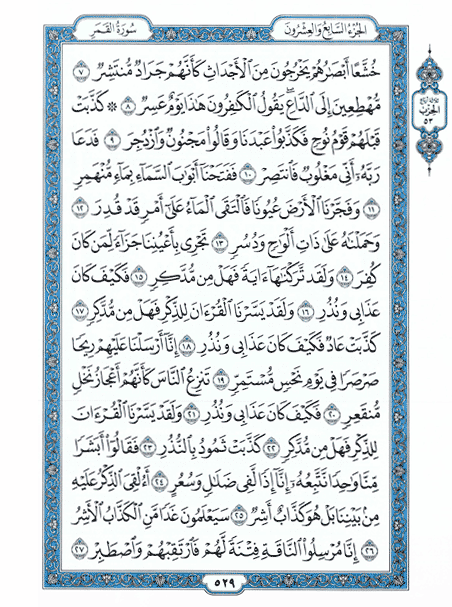 سُورَةُ القَمَرِ
الجُزْءُ السَّابِعُ وَالعِشْرُونَ
خُشَّعًا أَبْصَٰرُهُمْ يَخْرُجُونَ مِنَ ٱلْأَجْدَاثِ كَأَنَّهُمْ جَرَادٌ مُّنتَشِرٌ ٧
مُّهْطِعِينَ إِلَى ٱلدَّاعِ يَقُولُ ٱلْكَٰفِرُونَ هَٰذَا يَوْمٌ عَسِرٌ ٨ ۞ كَذَّبَتْ
قَبْلَهُمْ قَوْمُ نُوحٍ فَكَذَّبُوا۟ عَبْدَنَا وَقَالُوا۟ مَجْنُونٌ وَٱزْدُجِرَ ٩ فَدَعَا
رَبَّهُۥٓ أَنِّى مَغْلُوبٌ فَٱنتَصِرْ ١٠ فَفَتَحْنَآ أَبْوَٰبَ ٱلسَّمَآءِ بِمَآءٍ مُّنْهَمِرٍ
١١ وَفَجَّرْنَا ٱلْأَرْضَ عُيُونًا فَٱلْتَقَى ٱلْمَآءُ عَلَىٰٓ أَمْرٍ قَدْ قُدِرَ ١٢
وَحَمَلْنَٰهُ عَلَىٰ ذَاتِ أَلْوَٰحٍ وَدُسُرٍ ١٣ تَجْرِى بِأَعْيُنِنَا جَزَآءً لِّمَن كَانَ
كُفِرَ ١٤ وَلَقَد تَّرَكْنَٰهَآ ءَايَةً فَهَلْ مِن مُّدَّكِرٍ ١٥ فَكَيْفَ كَانَ
عَذَابِى وَنُذُرِ ١٦ وَلَقَدْ يَسَّرْنَا ٱلْقُرْءَانَ لِلذِّكْرِ فَهَلْ مِن مُّدَّكِرٍ ١٧
كَذَّبَتْ عَادٌ فَكَيْفَ كَانَ عَذَابِى وَنُذُرِ ١٨ إِنَّآ أَرْسَلْنَا عَلَيْهِمْ رِيحًا
صَرْصَرًا فِى يَوْمِ نَحْسٍ مُّسْتَمِرٍّ ١٩ تَنزِعُ ٱلنَّاسَ كَأَنَّهُمْ أَعْجَازُ نَخْلٍ
مُّنقَعِرٍ ٢٠ فَكَيْفَ كَانَ عَذَابِى وَنُذُرِ ٢١ وَلَقَدْ يَسَّرْنَا ٱلْقُرْءَانَ
لِلذِّكْرِ فَهَلْ مِن مُّدَّكِرٍ ٢٢ كَذَّبَتْ ثَمُودُ بِٱلنُّذُرِ ٢٣ فَقَالُوٓا۟ أَبَشَرًا
مِّنَّا وَٰحِدًا نَّتَّبِعُهُۥٓ إِنَّآ إِذًا لَّفِى ضَلَٰلٍ وَسُعُرٍ ٢٤ أَءُلْقِىَ ٱلذِّكْرُ عَلَيْهِ
مِنۢ بَيْنِنَا بَلْ هُوَ كَذَّابٌ أَشِرٌ ٢٥ سَيَعْلَمُونَ غَدًا مَّنِ ٱلْكَذَّابُ ٱلْأَشِرُ
٢٦ إِنَّا مُرْسِلُوا۟ ٱلنَّاقَةِ فِتْنَةً لَّهُمْ فَٱرْتَقِبْهُمْ وَٱصْطَبِرْ ٢٧
الحِزْب
٥٣
٥٢٩